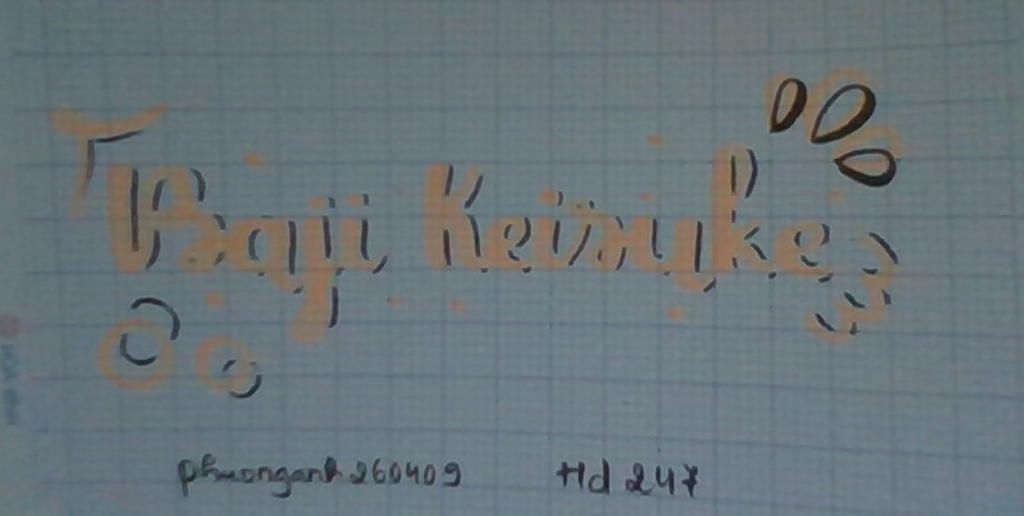 Baji Keisuke
phuonganh260409 Hd 247